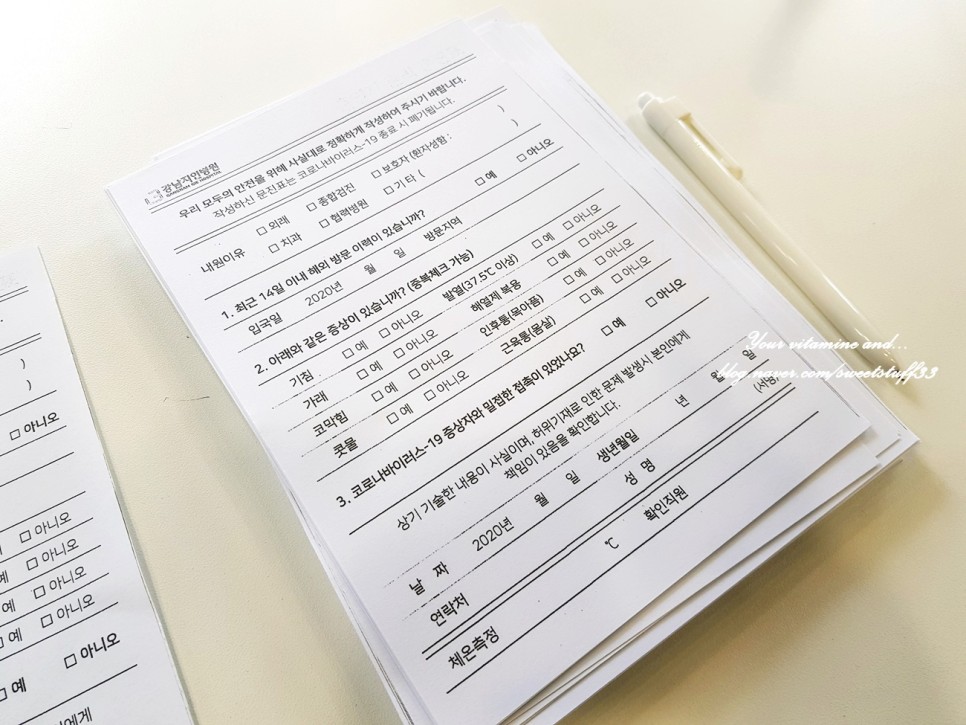 강남지인병원
우리 모두의 안전을 위해 사실대로 정확하게 작성하여 주시기 바랍니다.
작성하신 문진표는 코로나바이러스-19 종료 시 폐기됩니다.
내원이유 □ 외래 □ 종합검진 □ 보호자 (환자성함 : )
□ 치과 □ 협력병원 □ 기타 ( )
1. 최근 14일 이내 해외 방문 이력이 있습니까? □ 예 □ 아니오
입국일 2020년 월 일 방문지역
2. 아래와 같은 증상이 있습니까? (중복체크 가능)
기침 □ 예 □ 아니오 발열(37.5℃ 이상) □ 예 □ 아니오
가래 □ 예 □ 아니오 해열제 복용 □ 예 □ 아니오
코막힘 □ 예 □ 아니오 인후통(목아픔) □ 예 □ 아니오
콧물 □ 예 □ 아니오 근육통(몸살) □ 예 □ 아니오
3. 코로나바이러스-19 증상자와 밀접한 접촉이 있었나요? □ 예 □ 아니오
상기 기술한 내용이 사실이며, 허위기재로 인한 문제 발생시 본인에게
책임이 있음을 확인합니다.
날 짜 2020년 월 일 생년월일 년 월 일
연락처 성 명 (서명)
체온측정 ℃ 확인직원
)
)
□ 아니오
□ 아니오
□ 아니오
예 □ 아니오
□ 예 □ 아니오
□ 예 □ 아니오
에게
Your vitamine and...
blog.naver.com/sweetstuff33